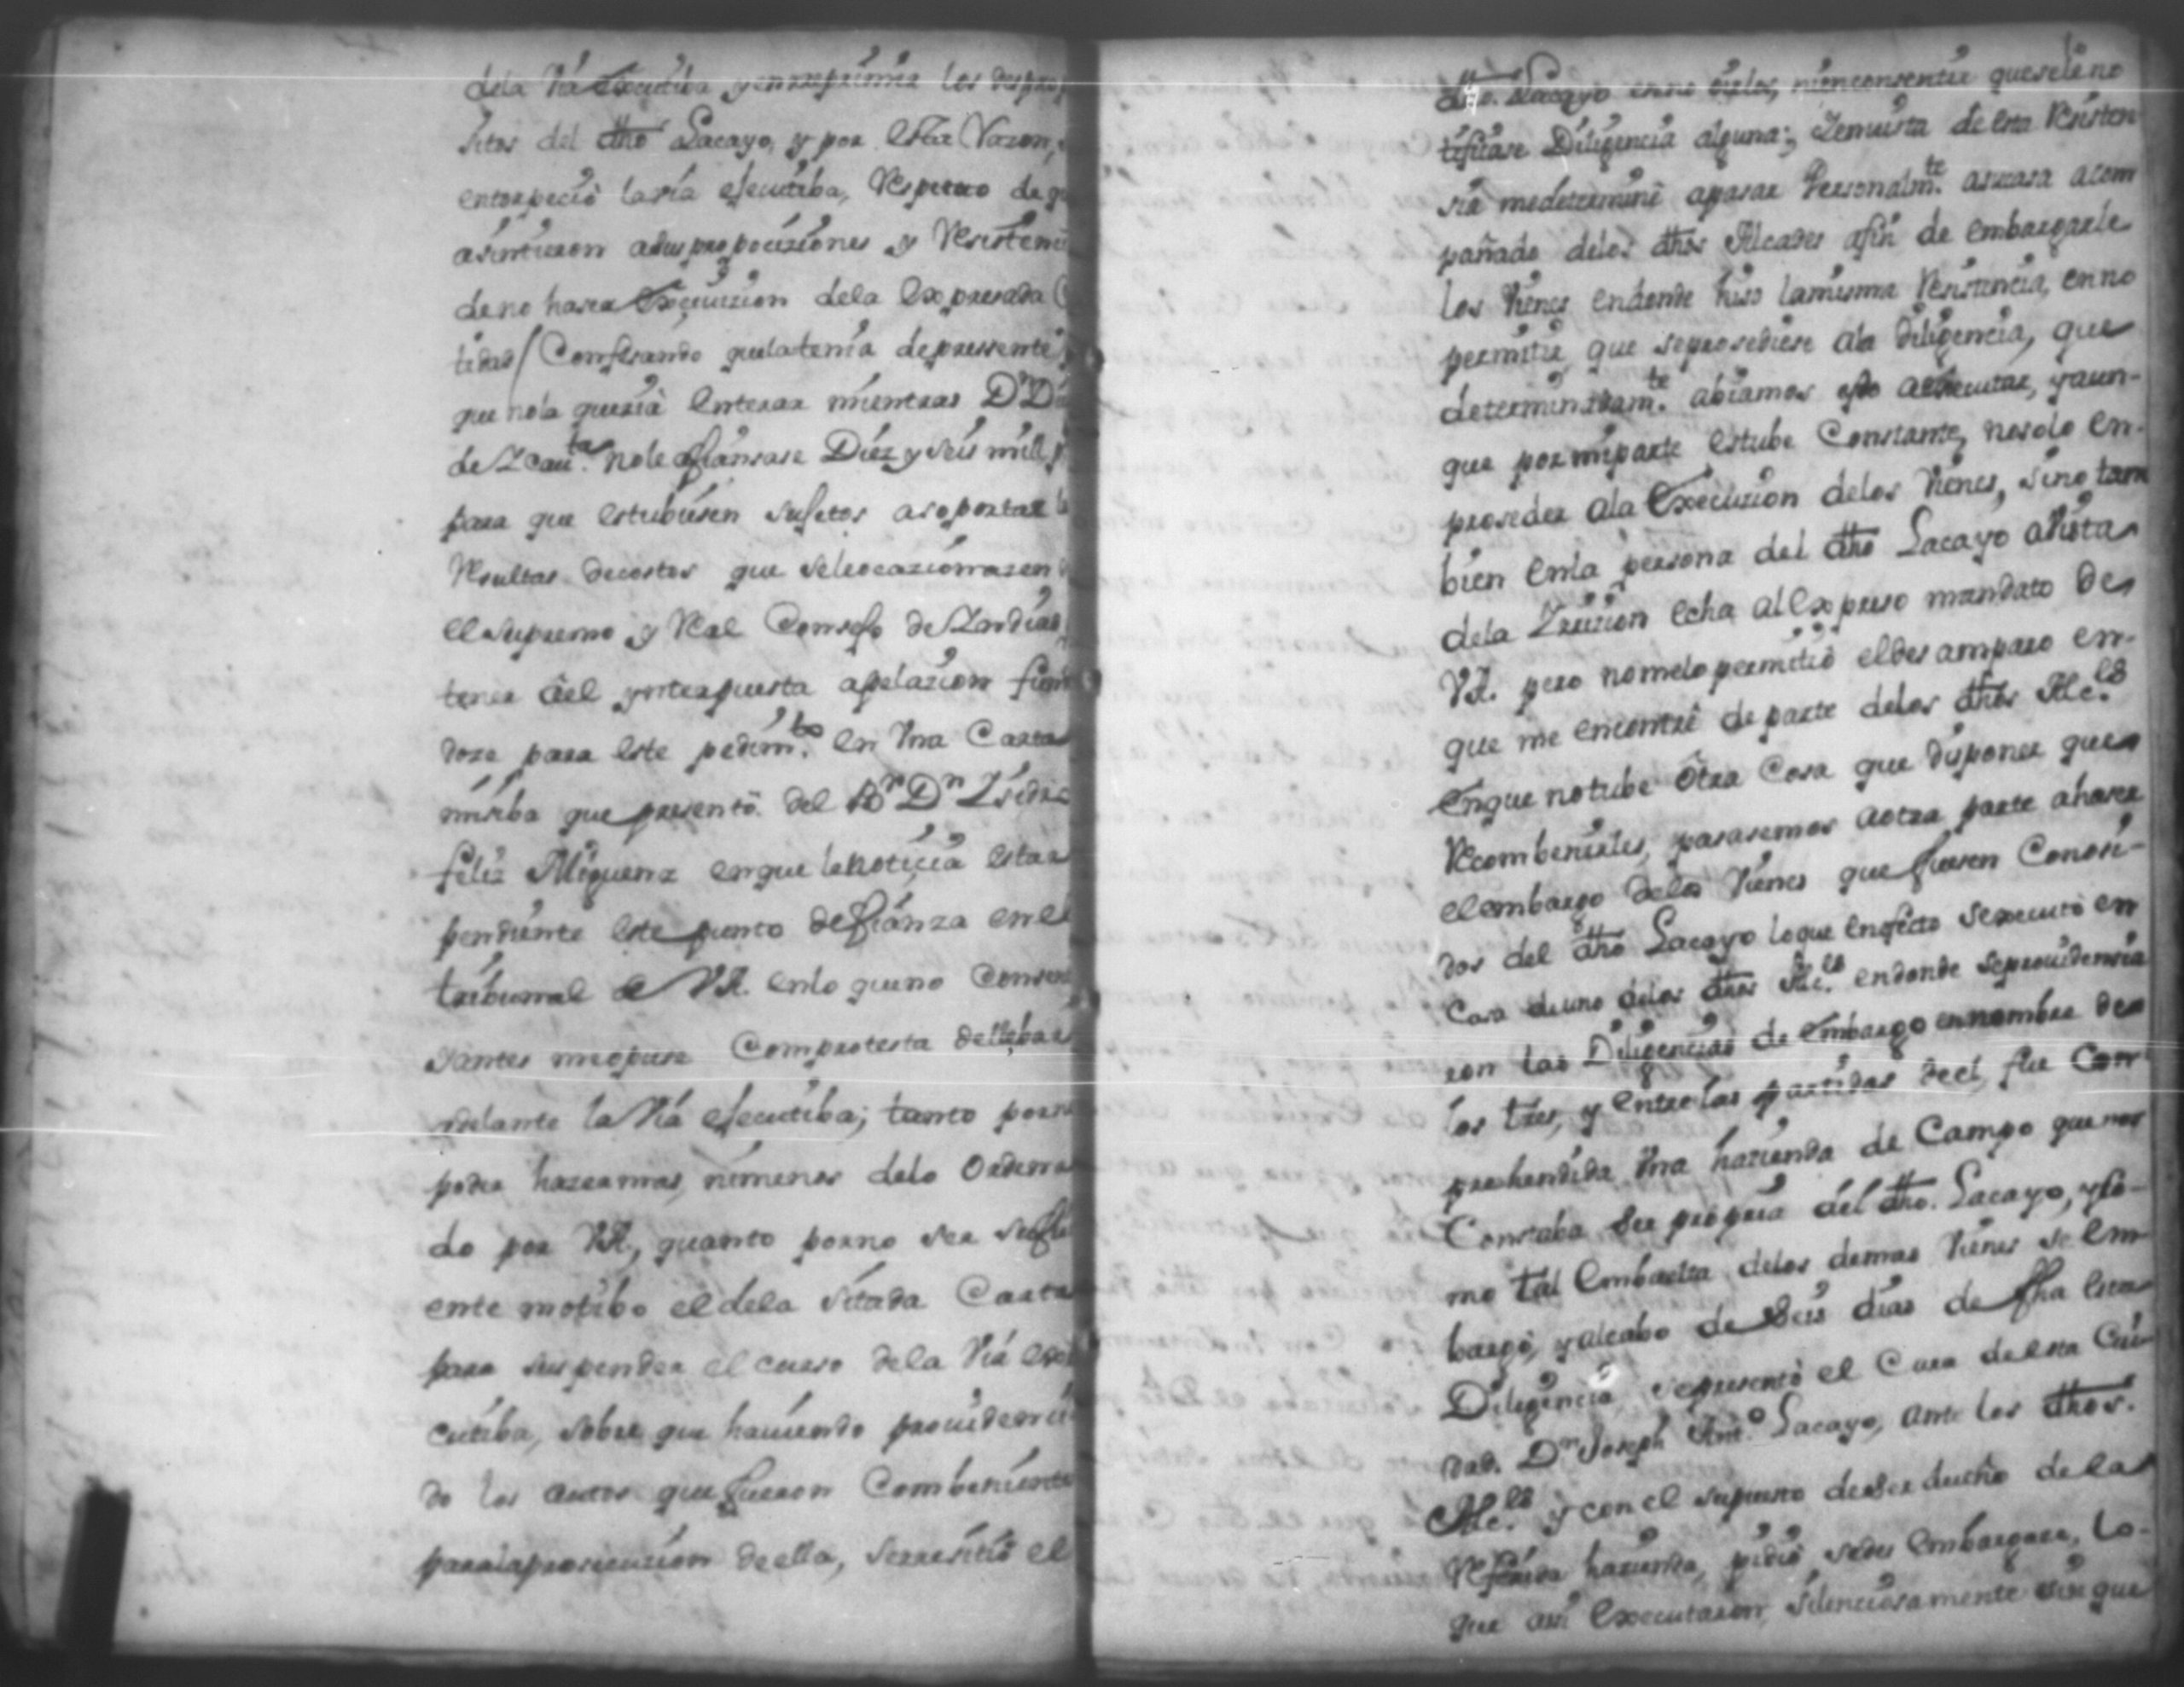 dela Vía Executiba y enrreprimir los despro
sitos del dho Lacayo, y por esta Razon,
entorpeció lavía esecutiba, Respecto de q
asintieron asus proposiziones y Resistenci
deno haser Exsecuzion dela expresada
tidad / Confesando quelatenia depressente
que nola queria enterar mientras Dn D
de Zcau.ta nole afiansase Diez y seis mill p
para que estubiesen sujetos asoportar l
Resultas decostos que seleocazionasen
el supremo y Real Consejo de Yndias
tener áél ynterpuesta apelazion fun
dose para este pedim.to en Una Carta
misiba que presentó del Br Dn Ysidro
feliz Miguens enque lenoticia estar
pendiente este punto defianza en el
tribunal de VA. enlo queno Consen
 antes meopuse Comprotesta dellebar
adelante la Vía esecutiba; tanto porno
poder hazer mas, nimenos delo Ordena
do por VA., quanto porno ser sufici
ente motibo el dela sitada Carta
para suspender el curso dela Vía exe
cutiba, sobre que haviendo providencia
do los autos que fueron Combeniente
paralaprosecuzion deella, serresitió el
dho. Lacayo enno oirlos, nienconsentir queselene
tifícase Diligencia alguna; Yenvista de esta Resisten
sia medeterminé apasar Personalm.te asucasa acom
pañado delos dhos Alcades afin de embargarle
los Vienes endonde hiso lamisma Resistencia, enno
permitir que seprosediese ala diligencia, que
determinadam.te abiamos ydo aexsecutar, yaun-
que pormiparte estube Constante, nosolo en-
proseder ala Execuzion delos Vienes, sino tam
bien enla persona del dho Lacayo aVista
dela Yrrizion echa al expreso mandato de
VA. pero nomelopermitió eldesamparo en-
que me encontré de parte delos dhos Alc.es
Enque notube ótra Cosa que disponer que
Recombenirles, pasasemos aotra parte ahaser
elembargo delos Vienes que fuesen Conosi-
dos del dho Lacayo loque enefecto seexecutó en
Casa deuno delos dhos Alc.es endonde seprovidensia
ron las Diligencias de embargo ennombre de
los tres, y entrelas partidas deel, fue Com
prehendida Una hazienda de Campo quenos
Constaba Ser propria del dho. Lacayo, yco-
mo tal embuelta delos demas Vienes se em
bargó, yalcabo de Seis dias de fha esta
Diligencia, sepresentó el Cura deesta Ciu
dad. Dn Joseph Ant.o Lacayo, ante los dhos.
Alc.es y con el supuesto deser dueño de la
Referida hazienda, pidió sedes embargara, lo-
que asi Executaron, silenciosamente sin que